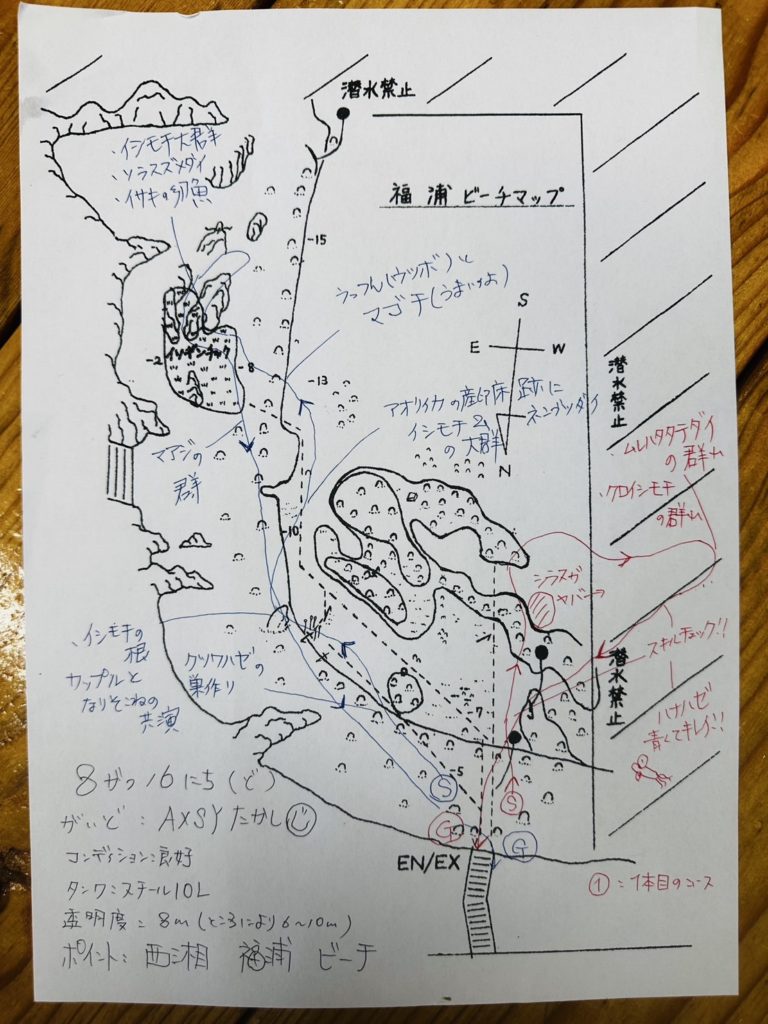 潜水禁止
・イシモチ大群
・ソラスズメダイ
・イサキの幼魚
福浦 ビーチマップ
-15
うっつん(ウツボ)と
マゴチ(うまいけよ)
S
E
W
N
-2
イソギンチャク
-8
-13
潜水禁止
アオリイカの産卵床跡に
イシモチ&ネンブツダイ
の大群
・ムレハタタテダイ
の群れ
・クロイシモチ
の群れ
マアジの
群
-10
シラスが
ヤバーっ
スキルチェック!!
潜水禁止
・イシモチの
根
カップルと
なりそこねの
共演
クツワハゼの
巣作り
ハナハゼ
青くてキレイ!!
8
7
-5
S
S
G
G
8がつ16にち(ど)
がいど:AXSYたかし
コンディション:良好
タンク:スチール10L
透明度:8m(ところにより6~10m)
ポイント:西湘 福浦 ビーチ
EN/EX
①:1本目のコース